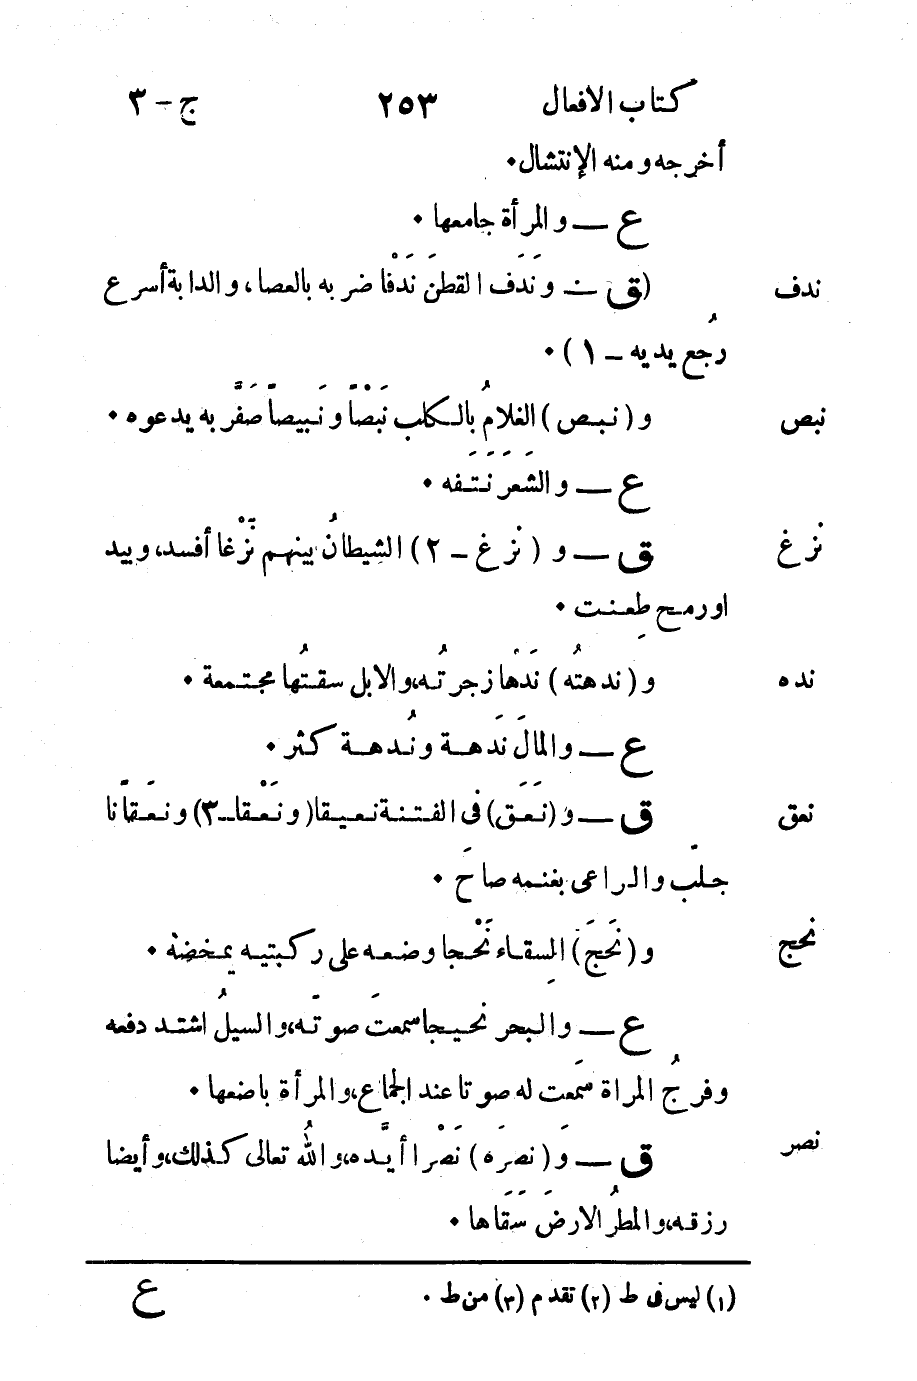 كتاب الافعال ٢٥٣ ج-٣
أخرجه ومنه الإنتشال٠
ع — والمرأة جامعها ٠
ندف (ق — ونَدَف القطنَ نَدْفًا ضربه بالعصا، والدابة أسرع
رجُع يديه – ١ ) ٠
نبص و ( نبص ) الغلامُ بالكلب نَبْصًا ونَبيصاً صَفَّر به يدعوه ٠
ع — والشَعَرَ نَتَفه ٠
نزغ ق — و ( نزغ – ٢ ) الشيطانُ بينهم نَزْغا أفسد، وبيد
اورمح طعنت ٠
نده و ( ندهتُه ) نَدْها زجرتُه، والابل سقتُها مجتمعة ٠
ع — والمالَ نَدهة ونُدهة كثر ٠
نعق ق — و (نَعَق) فى الفتنة نعيقا (ونَعْقا–٣) ونَعَقانا
جلّب والراعى بغنمه صاحَ ٠
نحج و (نَحَجَ) السِقاء نَحْجا وضعه على ركبتيه يمخضه ٠
ع — والبحر نحيجا سمعتَ صوتَه، والسيلُ اشتد دفعه
وفرجُ المراة سَمعت له صوتا عند الجماع، والمرأة باضعها ٠
نصر ق — وَ ( نصَره ) نَصْرا أيَّده، واللهُ تعالى كذلك، وأيضا
رزقه، والمطرُ الارضَ سَقَاها ٠
(١) ليس فى ط (٢) تقدم (٣) من ط ٠ ع